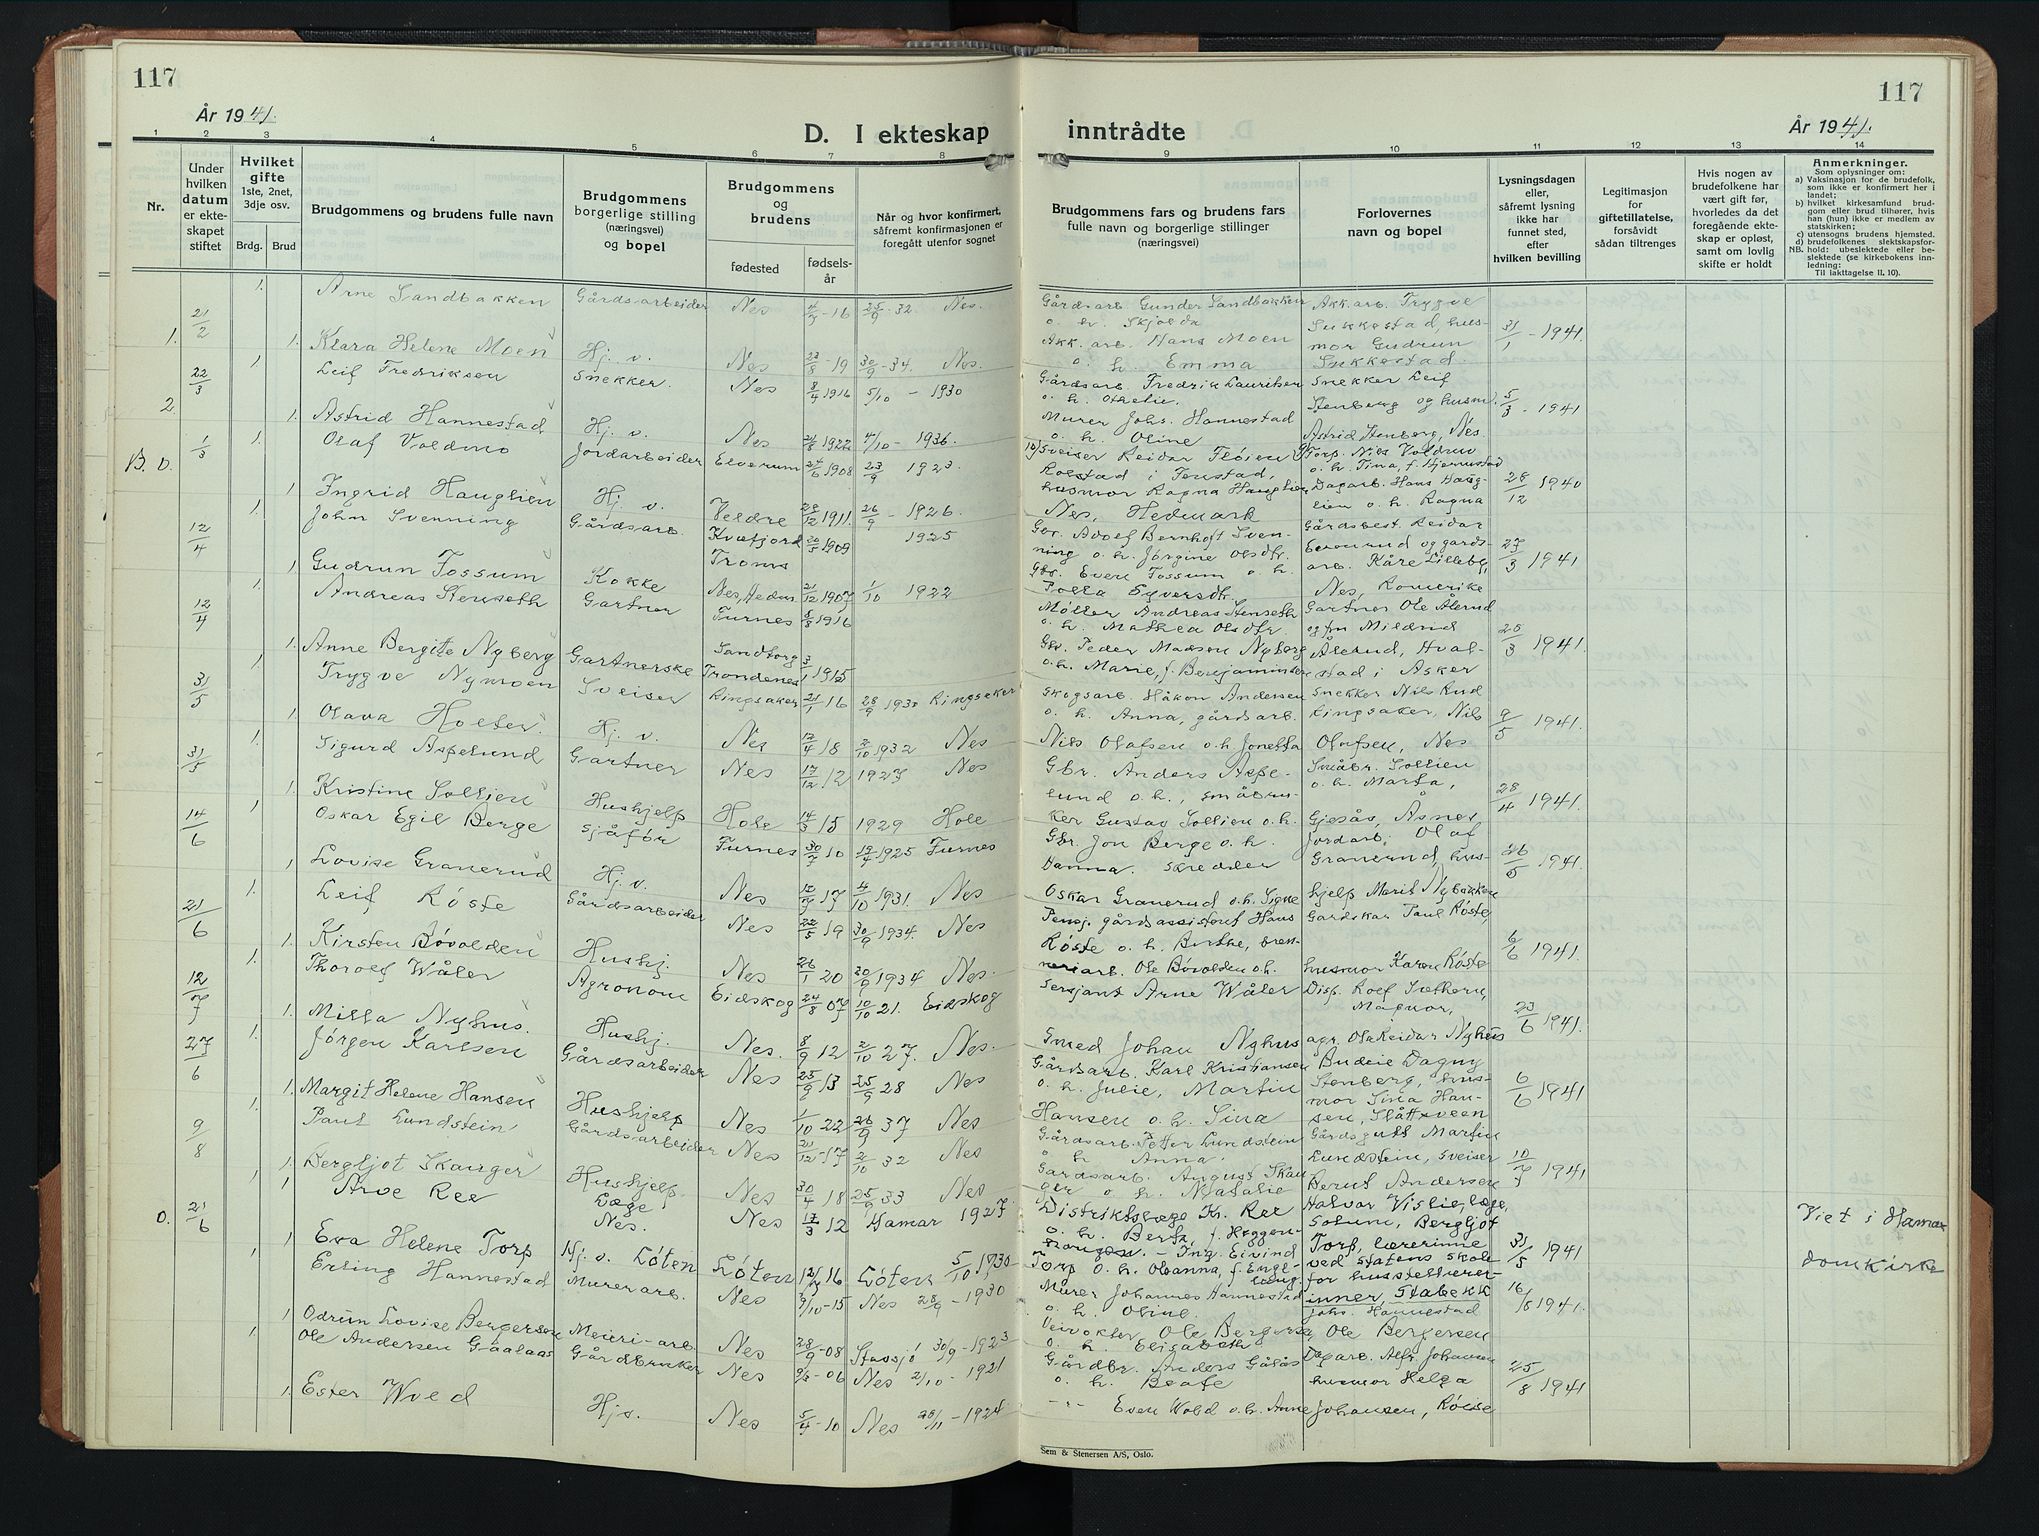 117
117
År 1941.
År 1941.
D. I ekteskap inntrådte
1 2 3 4 5 6 7 8 9 10 11 12 13 14
Nr.
Under hvilken datum er ekteskapet stiftet
Hvilket gifte 1ste, 2net, 3dje osv.
Brdg. Brud
Brudgommens og brudens fulle navn
Brudgommens borgerlige stilling (næringsvei) og bopel
Brudgommens og brudens
fødested
fødselsår
Når og hvor konfirmert, såfremt konfirmasjonen er foregått utenfor sognet
Brudgommens fars og brudens fars fulle navn og borgerlige stillinger (næringsvei)
Forlovernes navn og bopel
Lysningsdagen eller, såfremt lysning ikke har funnet sted, efter hvilken bevilling
Legitimasjon for giftetillatelse, forsåvidt sådan tiltrenges
Hvis nogen av brudefolkene har vært gift før, hvorledes da det foregående ekteskap er opløst, samt om lovlig skifte er holdt
Anmerkninger.
Som oplysninger om:
a) Vaksinasjon for de brudefolk, som ikke er konfirmert her i landet;
b) hvilket kirkesamfund brudgom eller brud tilhører, hvis han (hun) ikke er medlem av statskirken;
c) utensogns brudens hjemsted.
d) brudefolkenes slektskapsforhold: ubeslektede eller beslektede (se kirkebokens innledning:
NB.
Til iakttagelse II. 10).
1. 21/2 1. Arne Sandbakken Gårdsarbeider Nes 16 25/9-32 Nes. Gårdsarb. Gunder Sandbakken Akk.arb. Trygve
o. h. Skjolda Snekkestad, hus- 31/1-1941
1. Klara Helene Moen Hj. v. Nes 23/8-19 30/9-34. Nes. Akk. arb. Hans Moen mor Gudrun
o. h. Emma Snekkestad.
2. 22/3 1. Leif Fredriksen Snekker. Nes 8/4 1916 5/10-1930 Gårdsarb. Fredrik Lauritsen Snekker Leif
o. h. Othelie. Stenberg og husm. 5/3-1941
1. Astrid Hannestad Hj. v. Nes 1922 4/10-1936. Murer Johs. Hannestad
o. h. Oline Astrid Stenberg, Nes.
B. o. 1/3 1. Olaf Voldmo Jordarbeider Elverum 1908 23/9 1923. Sveiser Reidar Fløien
husmor Ragna Hauglien Dagarb. Hans Haug- 28/12 1940
1. Ingrid Hauglien Hj. v. Veldre 28/12 1911. 26/9-1926. Nes, Hedmark lien o. h. Ragna
12/4 1. John Svenning Gårdsarb. Kvæfjord Troms 20/5 1909 1925 Gbr. Adolf Bernhoft Sven- Gårdsbest. Reidar
ning o. h. Jørgine Olsdtr. og gards- 27/3 1941
1. Gudrun Fossum Kokke Nes, Hedm. 21/12 1907 1/10 1922 Gbr. Even Fossum o. h. arb. Kåre Lilleby,
Nes, Romerike
12/4 1. Andreas Stenseth Gartner Furnes 1916 Møller Andreas Stenseth Gartner Ole Ålerud
o. h. Mathea Olsdtr. og fru Mildrid 25/3 1941.
1. Anne Bergite Nyberg Gartnerske Sandtorg Trondenes 3/1 1915 Gbr. Peder Madsen Nyberg Ålerud, Hval-
o. h. Marie, f. Benjaminsen stad i Asker
31/5 1. Trygve Nymoen Sveiser Ringsaker 21/1 16 28/9 1930 Ringsaker Skogsarb. Håkon Andersen Snekker Nils Rud
o. h. Anna, gårdsarb. Ringsaker, Nils 9/5 1941.
1. Olava Holter Hj. v. Nes 17/4 18 2/10 1932 Nes Nils Olafsen o. h. Jonetta Olafsen, Nes
31/5 1. Sigurd Aspelund Gartner Nes 17/12 12 1927 Nes Gbr. Anders Aspe- Småbr. Sollien
lund o. h., småbru- o. h. Marta, 28/4 1941.
1. Kristine Sollien Hushjelp Hole 14/3 15 1929 Hole ker Gustav Sollien o. h. Gjesås, Åsnes
14/6 1. Oskar Egil Berge Sjåfør Furnes 30/7 10 19/4 1925 Furnes Gbr. Jon Berge o. h. Jordarb. Olaf
Hanna. Skredder Granerud, hus- 26/5 1941.
1. Lovise Granerud Hj. v. Nes 17 4/10 1931. Nes Oskar Granerud o. h. Signe hjelp Marit Nybakken
21/6 1. Leif Røste Gårdsarbeider Nes 22/5 19 30/9 1934. Nes Pensj. gårdsassistent Hans Gardskar Paul Røste,
Røste o. h. Berthe, bren- 6/6 1941.
1. Kirsten Bøvolden Hushj. Nes 26/1 20 30/9 1934 Nes. neriarb. Ole Bøvolden o. h. husmor Karen Røste
12/7 1. Thorolf Wåler Agronom Eidskog 24/8 07 10/10 21. Eidskog Sersjant Arne Wåler Disp. Rolf Sæthern,
Magnor, 23/6 1941.
1. Milla Nyhus. Hushj. Nes. 8/9 12 2/10 27. Nes. Smed Johan Nyhus agr. Ola Reidar Nyhus
27/6 1. Jørgen Karlsen Gårdsarbeider Nes 25/9 13 25/9 28 Nes Gårdsarb. Karl Kristiansen Budeie Dagny
o. h. Julie, Martin Stenberg, hus- 6/6 1941
1. Margit Helene Hansen Hushjelp Nes 1/10 22 26/9 37 Nes Hansen o. h. Sina mor Sina Han-
sen, Slåttsveen
9/8 1. Paul Lundstein Gårdsarbeider Nes 21/12-17 2/10 32 Nes Gårdsarb. Petter Lundstein Gårdsgutt Martin
o. h Anna. Lundstein, sveiser 10/7 1941
1. Bergljot Skauger Hushjelp. Nes 30/4 18 25/9 33 Nes Gårdsarb. August Skau- Bernt Andersen
ger o. h. Natalie
o. 21/6 1 Arve Ree Læge Nes. Nes 17/3 12 Hamar 1927. Distriktslæge Kr. Ree Halvar Vislie, læge,
o. h. Berta, f. Hoggen- Solum, Bergljot 31/5 1941 Viet i Hamar
1 Eva Helene Torp Hj. v. Løten Løten 16 Løten 5/10 1930 Ing. Eivind Torp, lærerinne domkirke
Torp o. h. Olanna, f. Engl- ved statens skole
for husstellærer-
inner, Stabekk
1 Erling Hannestad Murerarb. Nes 9/10-15 Nes 28/9-1930 Murer Johannes Hannestad 16/8 1941.
o. h. Oline. Johs. Hannestad
1 Odrun Lovise Bergersen Meieri-arb. Nes 28/9-08 Stavsjø 30/9-1923 Veivokter Ole Bergersen Ole Bergersen
o. h. Elisabeth
1 Ole Andersen Gaalaas Gårdbruker Nes 06 Nes 2/10-1921 Gårdbr. Anders Gålås Dagarb. Alfr. Johansen
o. h. Beate husmor Helga 25/8 1941
1 Ester Wold Hjv. Nes 5/4-10 Nes 1924. -"- Even Wold o. h. Anne Johansen, Røise
Sem & Stenersen A/S, Oslo.